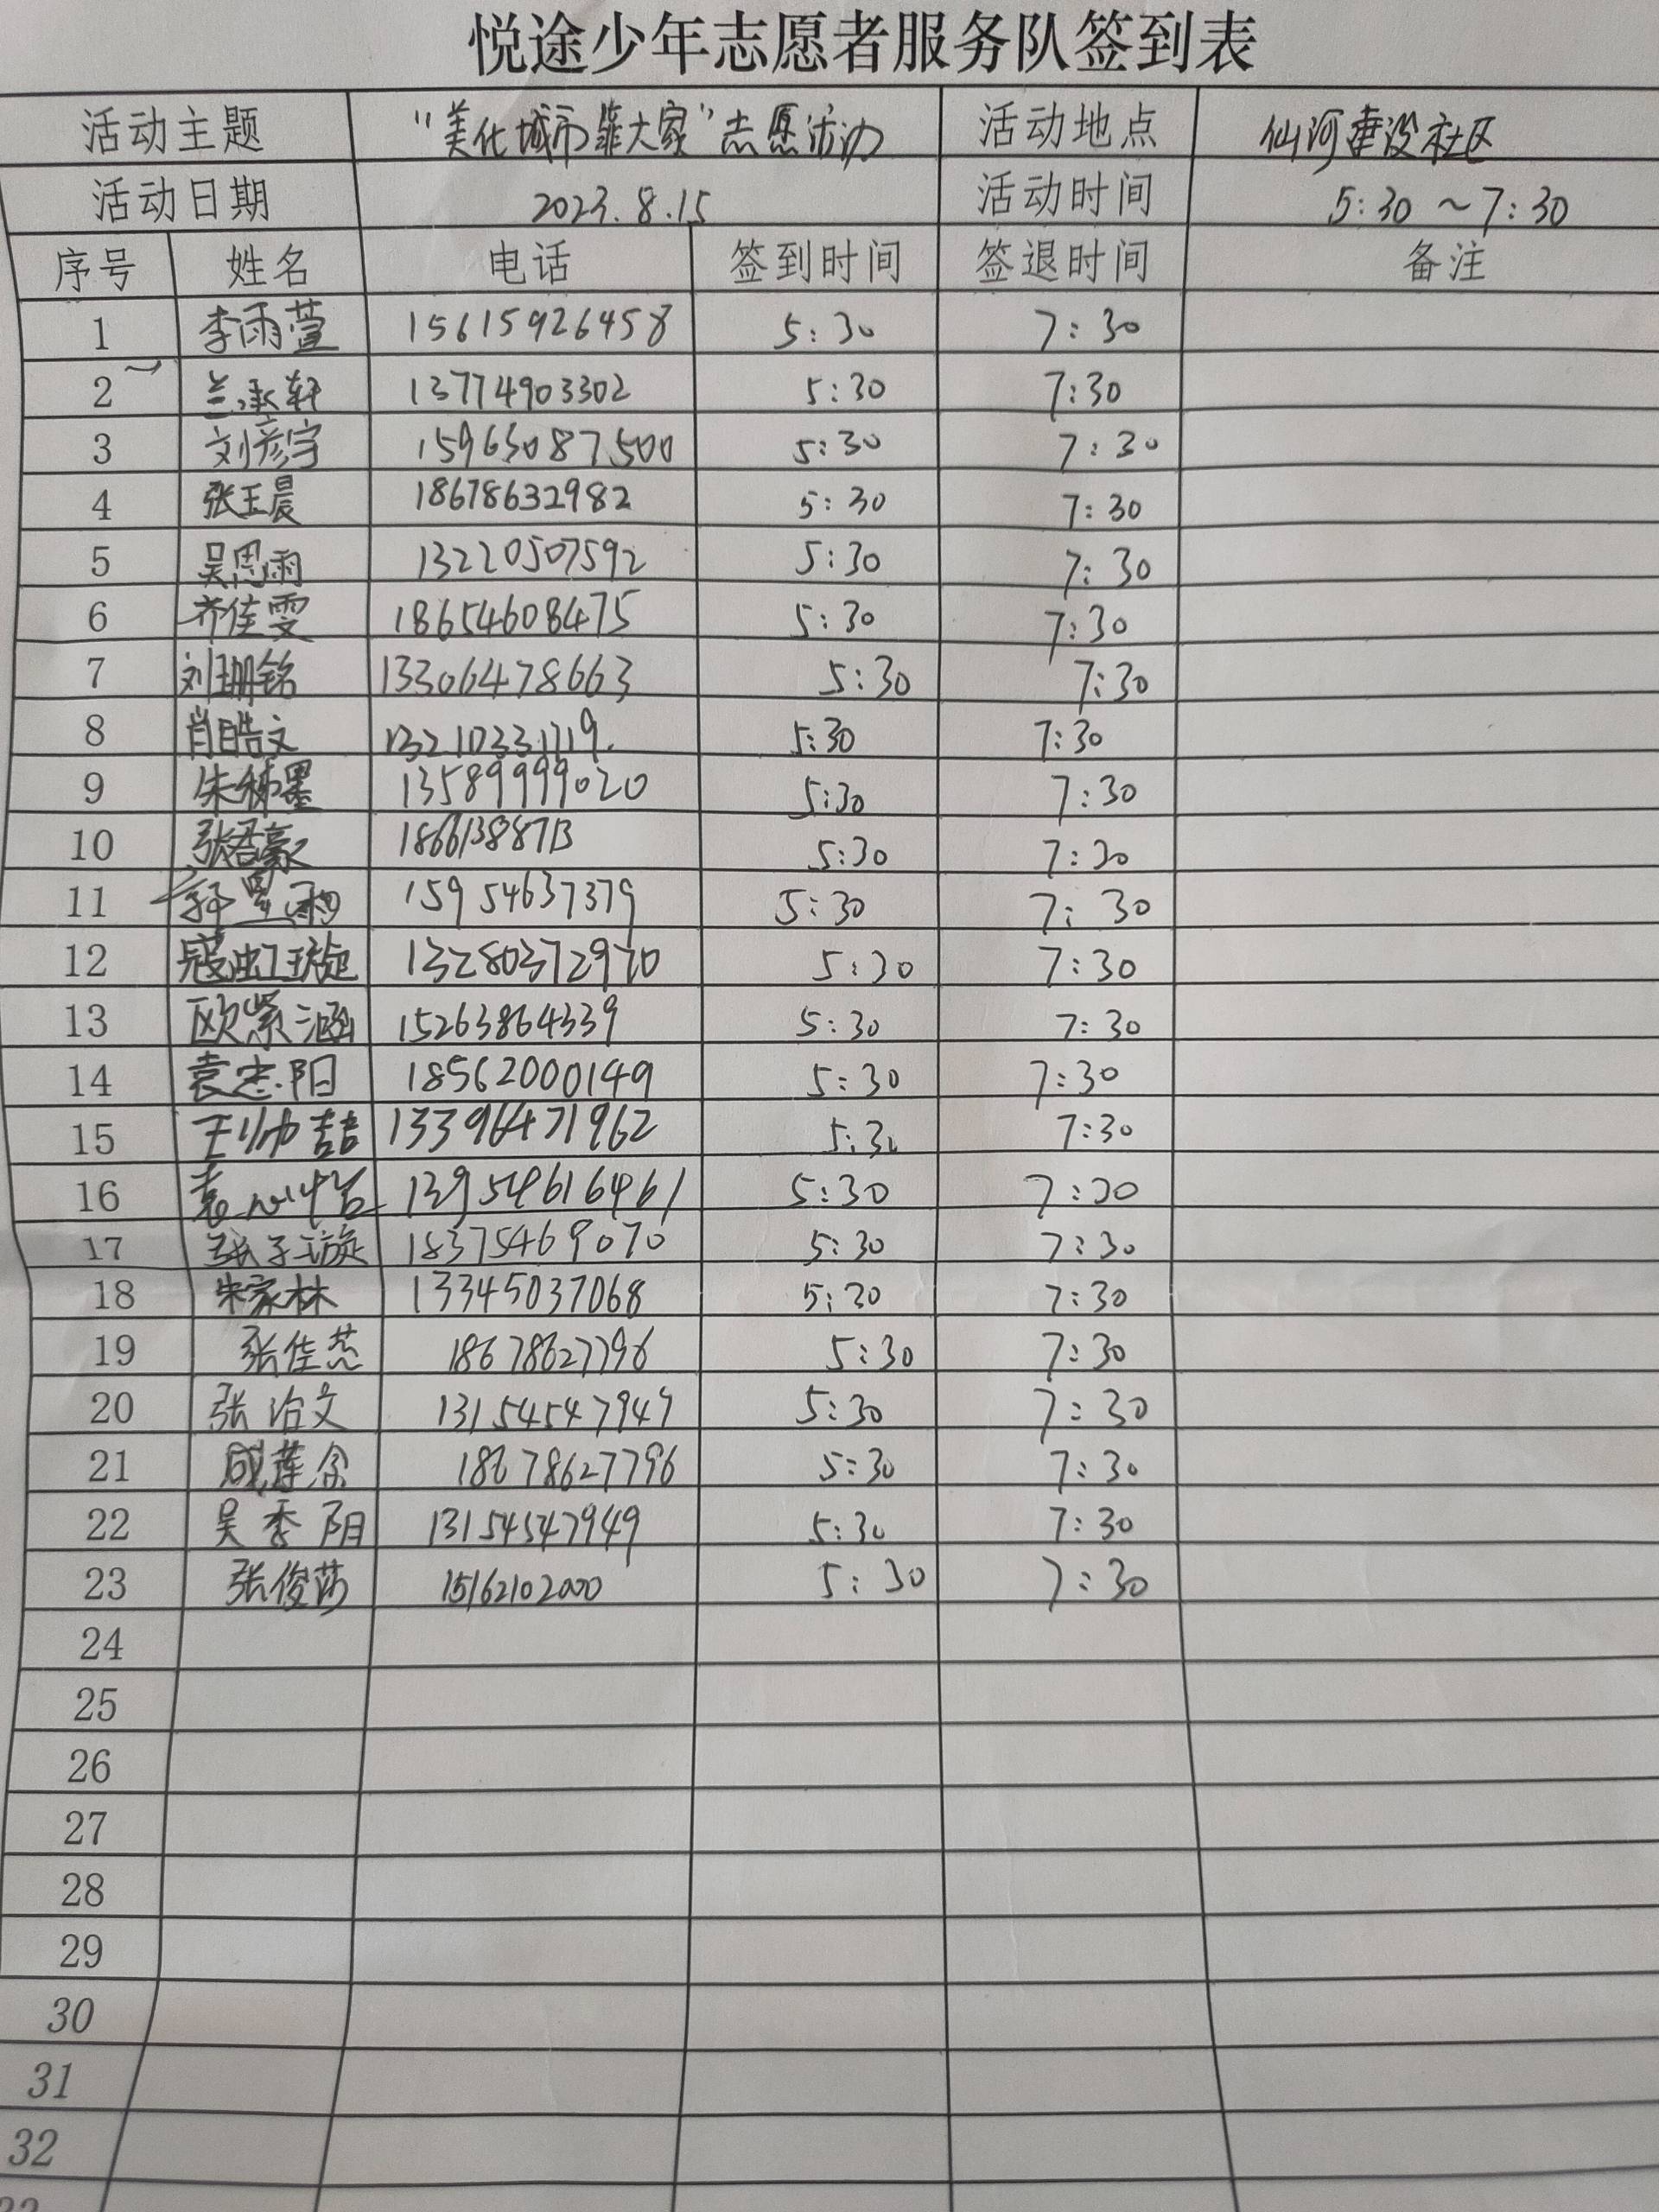 悦途少年志愿者服务队签到表
活动主题 “美化城市靠大家”志愿活动 活动地点 仙河建设社区
活动日期 2023.8.15 活动时间 5:30～7:30
序号 姓名 电话 签到时间 签退时间 备注
1 李雨萱 15615926458 5:30 7:30
2 兰承轩 13774903302 5:30 7:30
3 刘彦宇 15963087500 5:30 7:30
4 张玉晨 18678632982 5:30 7:30
5 吴思雨 13220507592 5:30 7:30
6 齐佳雯 18654608475 5:30 7:30
7 刘珊铭 13306478663 5:30 7:30
8 肖皓文 13210331719 5:30 7:30
9 朱稀墨 13589999020 5:30 7:30
10 张君豪 5:30 7:30
11 15954637379 5:30 7:30
12 寇虹璇 13280372970 5:30 7:30
13 欧紫涵 15263864339 5:30 7:30
14 袁志阳 18562000149 5:30 7:30
15 王帅喆 13396471962 5:30 7:30
16 袁 5:30 7:30
17 张子璇 18375469070 5:30 7:30
18 朱家林 13345037068 5:30 7:30
19 张佳燕 18678627796 5:30 7:30
20 张治文 13154547949 5:30 7:30
21 18678627796 5:30 7:30
22 吴季阳 13154547949 5:30 7:30
23 张俊莎 15162102000 5:30 7:30
24
25
26
27
28
29
30
31
32